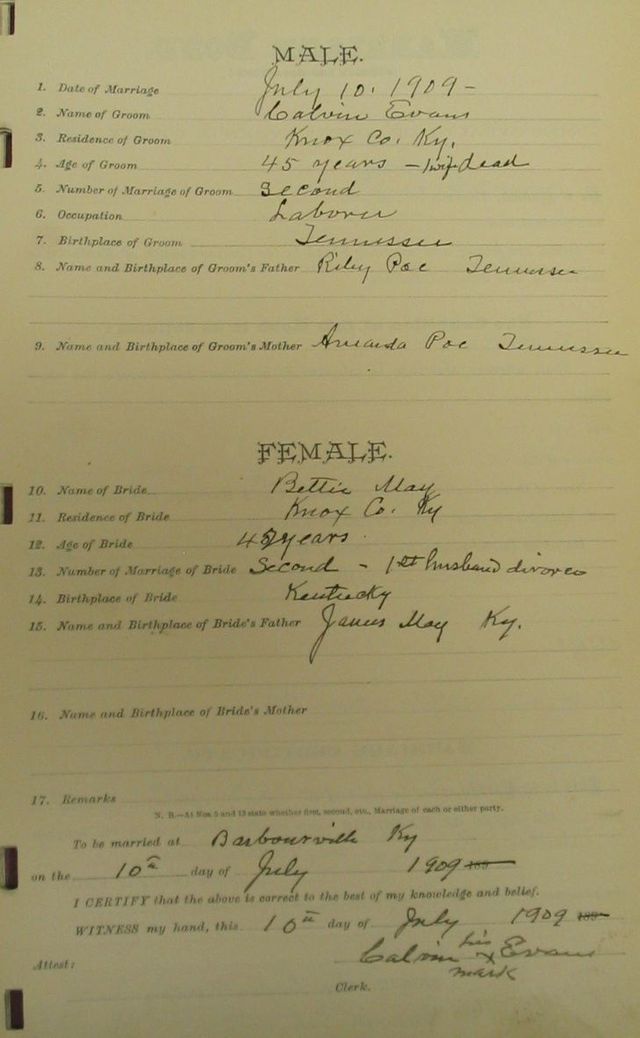 MALE.
1. Date of Marriage July 10. 1909-
2. Name of Groom Calvin Evans
3. Residence of Groom Knox Co. Ky.
4. Age of Groom 45 years - 1 wife dead
5. Number of Marriage of Groom Second
6. Occupation Laborer
7. Birthplace of Groom Tennessee
8. Name and Birthplace of Groom's Father Riley Poe Tennessee
9. Name and Birthplace of Groom's Mother Amanda Poe Tennessee
FEMALE.
10. Name of Bride Bettie May
11. Residence of Bride Knox Co. Ky
12. Age of Bride years
13. Number of Marriage of Bride Second - 1st husband divorce
14. Birthplace of Bride Kentucky
15. Name and Birthplace of Bride's Father James May Ky.
16. Name and Birthplace of Bride's Mother
17. Remarks
N. B.—At Nos 5 and 13 state whether first, second, etc., Marriage of each or either party.
To be married at Barbourville Ky
on the 10th day of July 1909
I CERTIFY that the above is correct to the best of my knowledge and belief.
WITNESS my hand, this 10th day of July 1909
his
Calvin x Evans
mark
Attest:
Clerk.